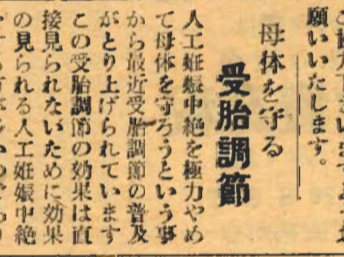 願いいたします。
母体を守る
受胎調節
人工妊娠中絶を極力やめ
て母体を守ろうという事
から最近受胎調節の普及
がとり上げられています
この受胎調節の効果は直
接見られないために効果
の見られる人工妊娠中絶